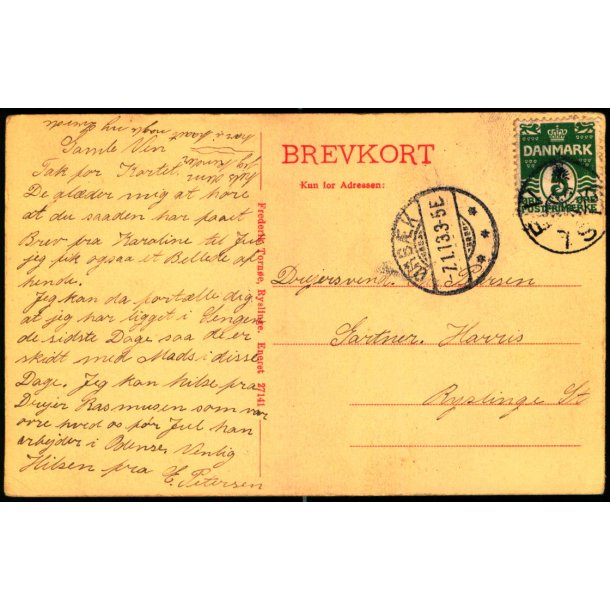 Gamle Ven
Tak for Kortet.
De glæder mig at höre
at du saaden har faaet
Brev fra Karoline til Jul
jeg fik ogsaa et Billede af
hende.
Jeg kan da fortælle dig
at jeg har ligget i Sengen
de sidste Dage saa de er
skidt med Mads i disse
Dage. Jeg kan hilse fra
Drejer Rasmusen som var
ovre hved os før Jul han
arbejder i Odense Venlig
Hilsen fra E. Petersen
Frederik Tornøe, Ryslinge. Eneret 27141
BREVKORT
Kun for Adressen:
DANMARK
5
ØRBÆK
7.1.13.3-5E
Drejersvend Petersen
Gartner. Harris
Ryslinge St